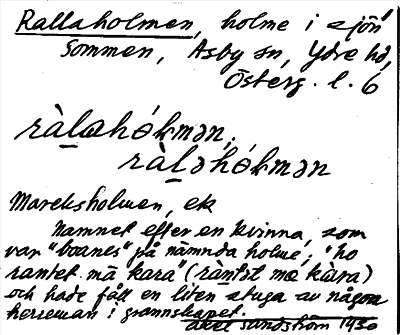 Rallaholmen, holme i sjön
Sommen, Asby sn, Ydre hd,
Österg. l. 6
ràlahólmən,
ràləhólmən
Mareksholmen, ek
Namnet efter en kvinna, som
var "boanes" på nämnda holme, "ho
rantet mä kara (ràntət mæ kàra)
och hade fått en liten stuga av någon
herreman i grannskapet.
Axel Sandström 1930